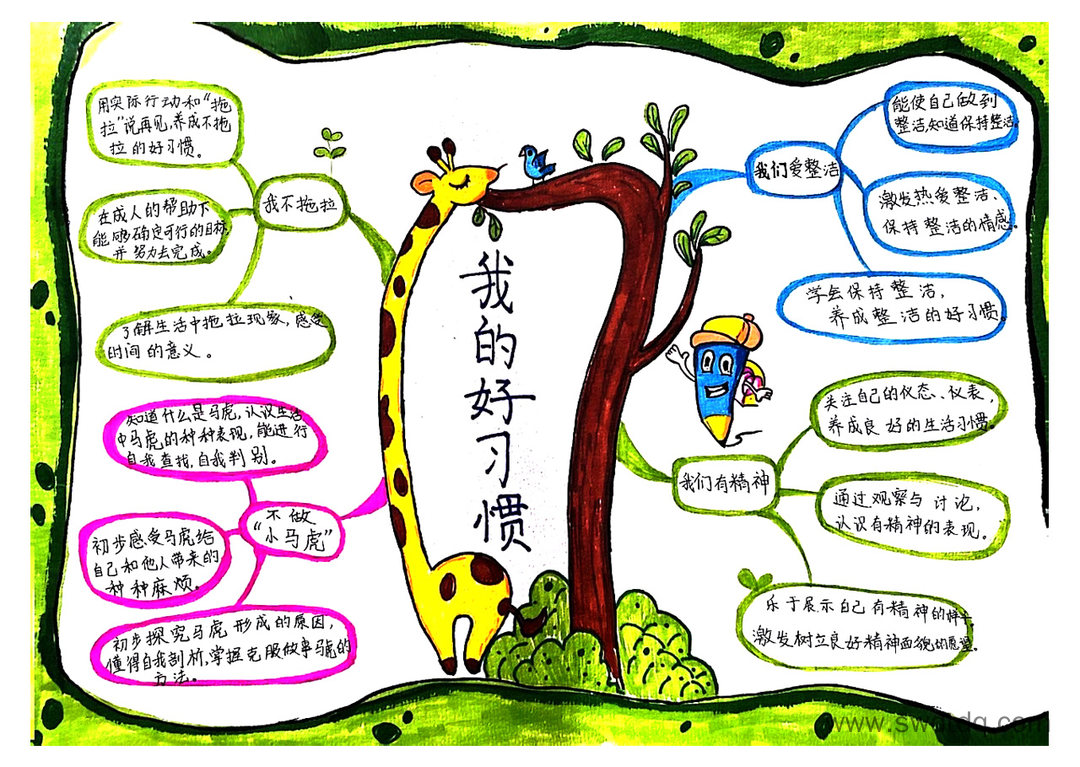 我的好习惯
我不拖拉
用实际行动和“拖
拉”说再见,养成不拖
拉的好习惯。
在成人的帮助下
能够确定可行的目标
并努力去完成。
了解生活中拖拉现象,感觉
时间的意义。
不做
“小马虎”
知道什么是马虎,认识生活
中马虎的种种表现,能进行
自我查找,自我判别。
初步感受马虎给
自己和他人带来的
种种麻烦。
初步探究马虎形成的原因,
懂得自我剖析,掌握克服做事马虎的
方法。
我们爱整洁
能使自己做到
整洁,知道保持整洁。
激发热爱整洁、
保持整洁的情感。
学会保持整洁,
养成整洁的好习惯。
我们有精神
关注自己的仪态、仪表,
养成良好的生活习惯。
通过观察与讨论,
认识有精神的表现。
乐于展示自己有精神的样子,
激发树立良好精神面貌的愿望。